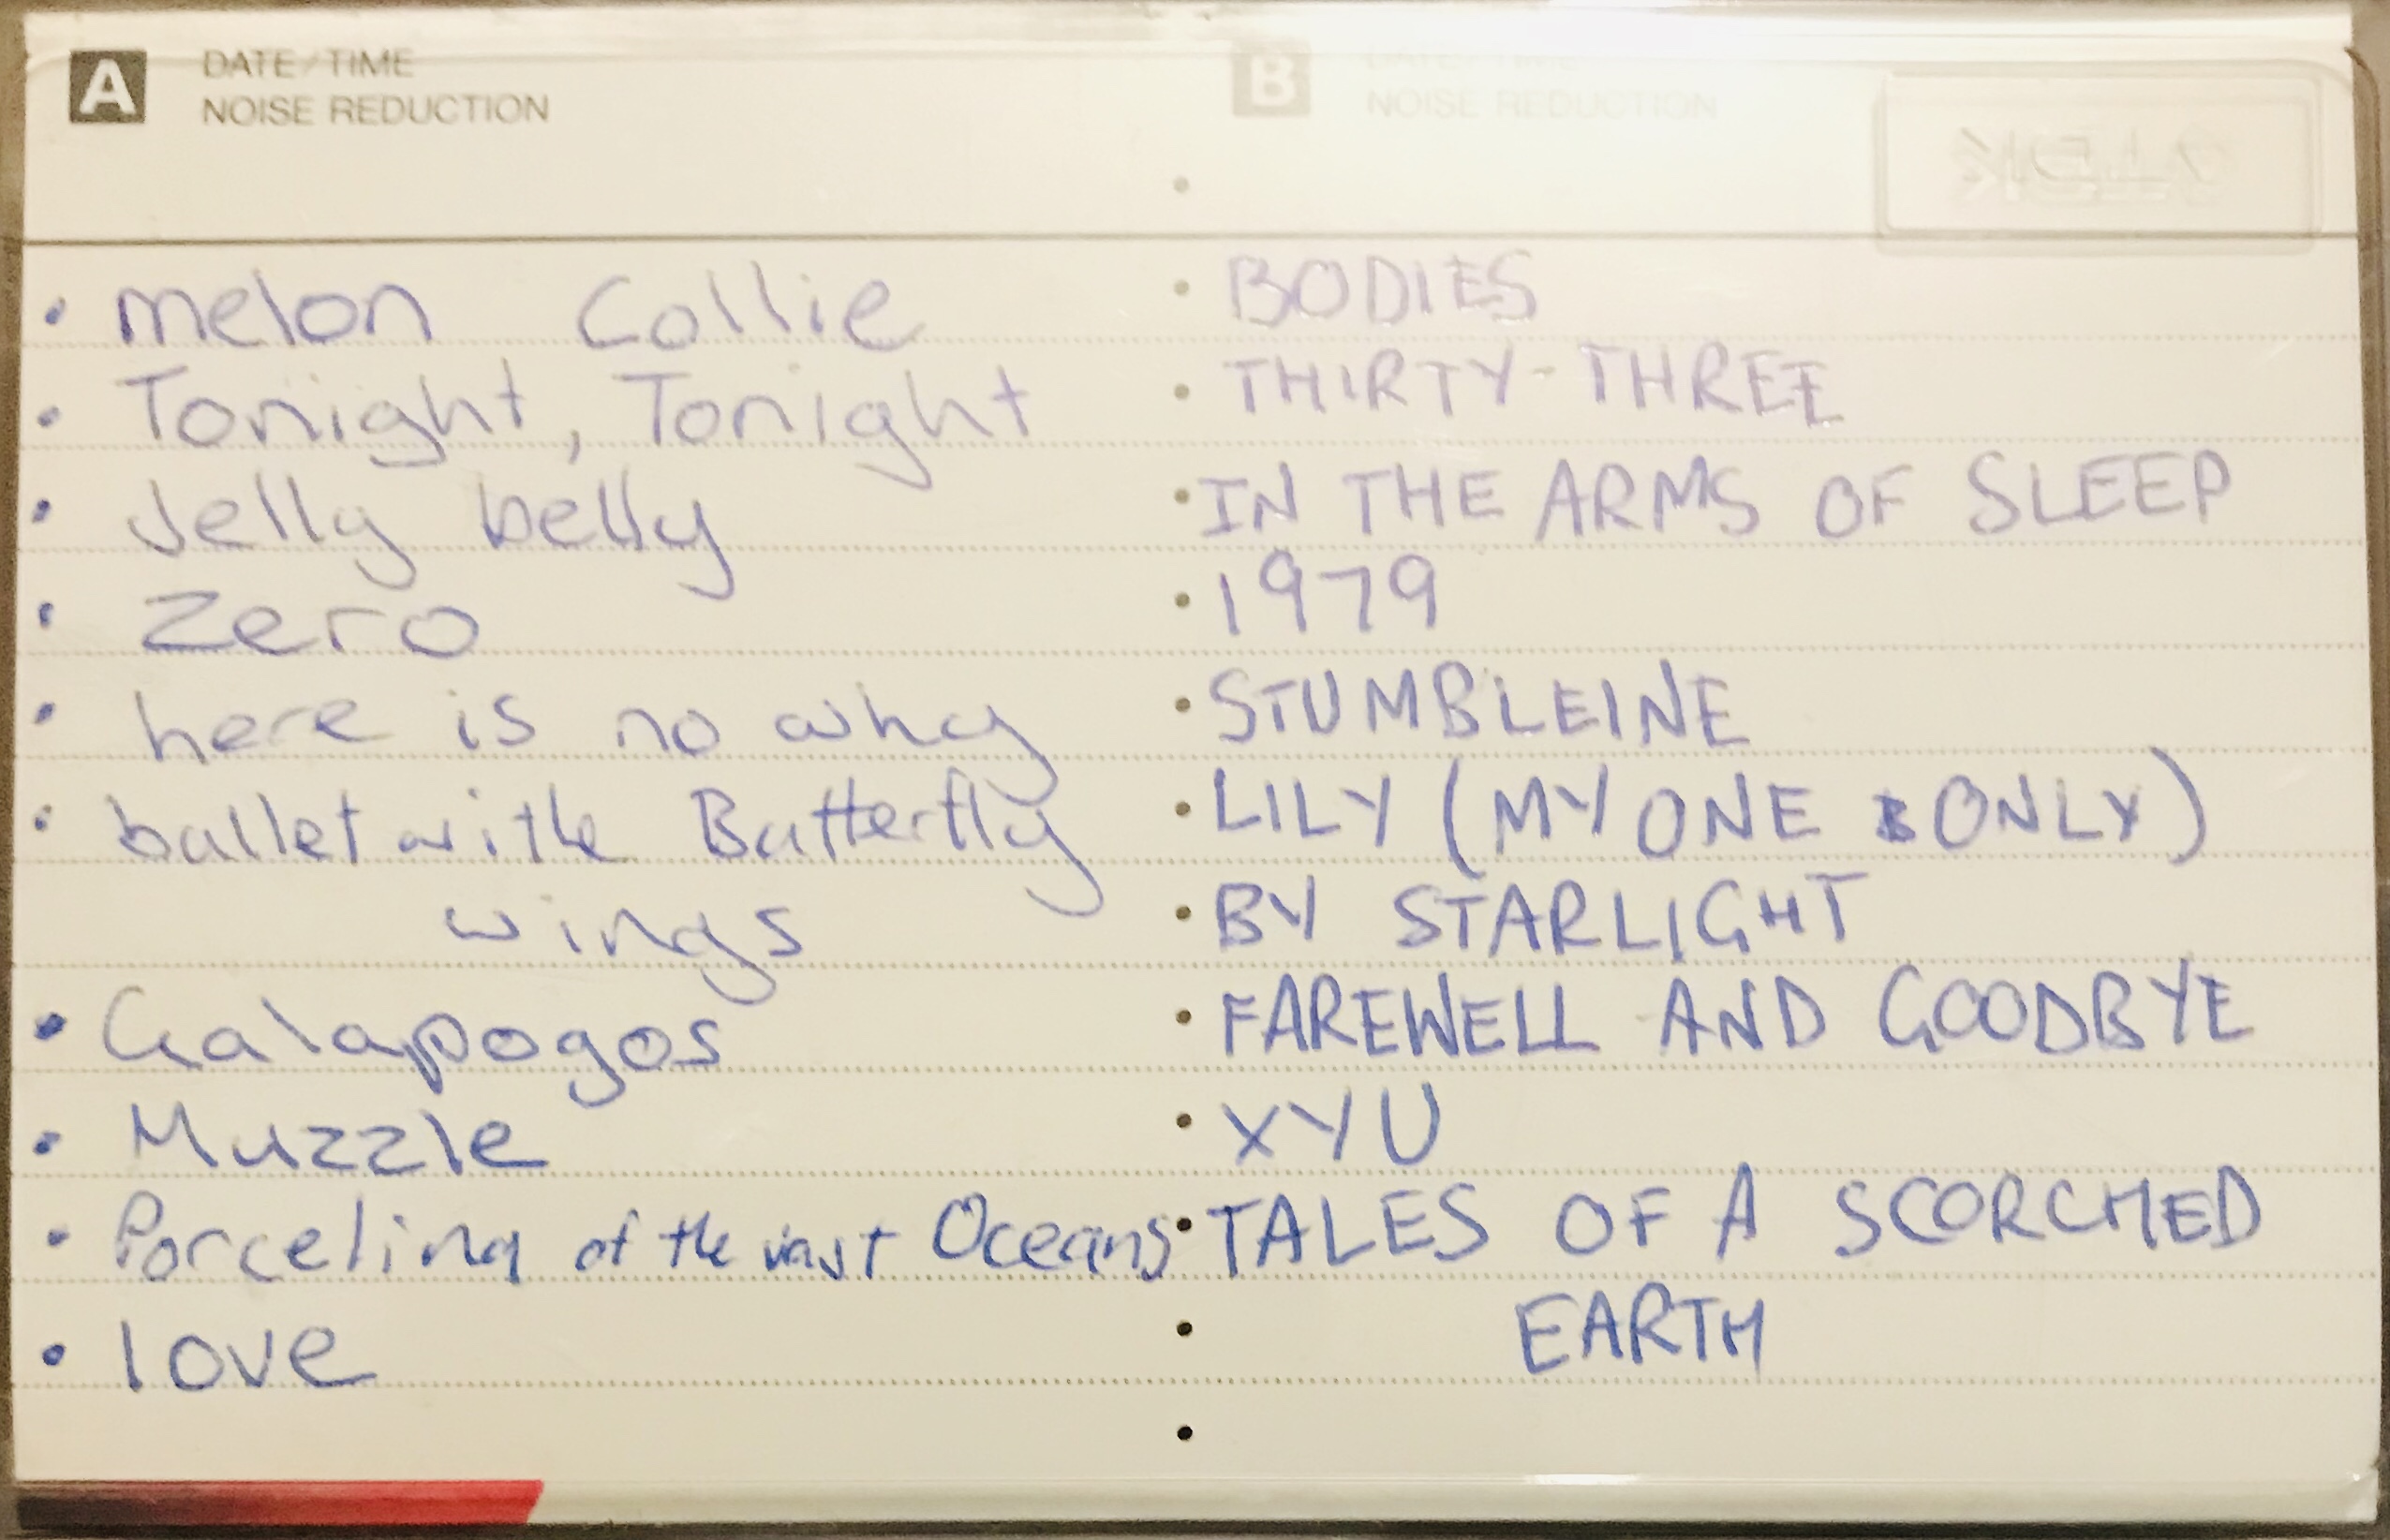 A DATE/TIME
NOISE REDUCTION
melon Collie
Tonight, Tonight
Jelly belly
Zero
here is no why
bullet with Butterfly
wings
Galapogos
Muzzle
Porcelina of the vast Oceans
love
B DATE/TIME
NOISE REDUCTION
TDK
BODIES
THIRTY-THREE
IN THE ARMS OF SLEEP
1979
STUMBLEINE
LILY (MY ONE & ONLY)
BY STARLIGHT
FAREWELL AND GOODBYE
XYU
TALES OF A SCORCHED
EARTH